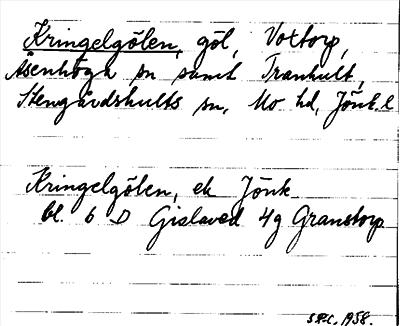 Kringelgölen, göl, Voxtorp,
Åsenhöga sn samt Tranhult,
Stengårdshults sn, Mo hd, Jönk.l
Kringelgölen, ek Jönk
bl. 6 D Gislaved 4g Granstorp
1958.